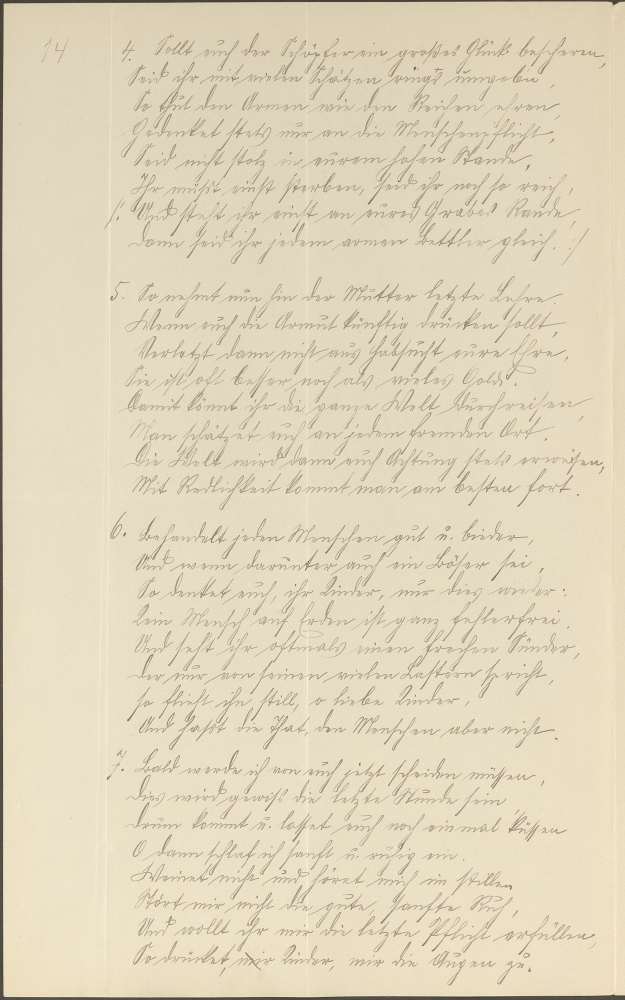 14
4. Sollt euch der Schöpfer ein großes Glück bescheren,
Seid ihr mit vielen Schätzen rings umgeben,
So tut den Armen wie den Reichen ehren,
Gedenket stets nur an die Menschenpflicht,
Seid nicht stolz in eurem hohen Stande,
Ihr müßt einst sterben, seid ihr noch so reich,
/: Und steht ihr einst an eures Grabes Rande,
Dann seid ihr jedem armen Bettler gleich. :/
5. So nehmt nun hin der Mutter letzte Lehre.
Wenn euch die Armut künftig drücken sollt,
Verletzt dann nicht aus Habsucht eure Ehre,
Sie ist oft besser noch als vieles Gold.
Damit könnt ihr die ganze Welt durchreisen,
Man schätzet euch an jedem fremden Ort.
Die Welt wird dann euch Achtung stets erweisen,
Mit Redlichkeit kommt man am besten fort.
6. Behandelt jeden Menschen gut u. bieder,
Und wenn darunter auch ein Böser sei,
So denket euch, ihr Kinder, nur dies wieder:
Kein Mensch auf Erden ist ganz fehlerfrei.
Und seht ihr oftmals einen frechen Sünder,
Der nur von seinen vielen Lastern spricht,
so flieht ihn still, o liebe Kinder,
Und haßt die That, den Menschen aber nicht.
7. Bald werde ich von euch jetzt scheiden müssen,
Dies wird gewiß die letzte Stunde sein,
Drum kommt u. lasset euch noch einmal küssen
O dann schlaf ich sanft u. ruhig ein.
Weinet nicht und höret mich im stillen
Stört mir nicht die gute, sanfte Ruh,
Und wollt ihr mir die letzte Pflicht erfüllen,
So drücket, Kinder, mir die Augen zu.